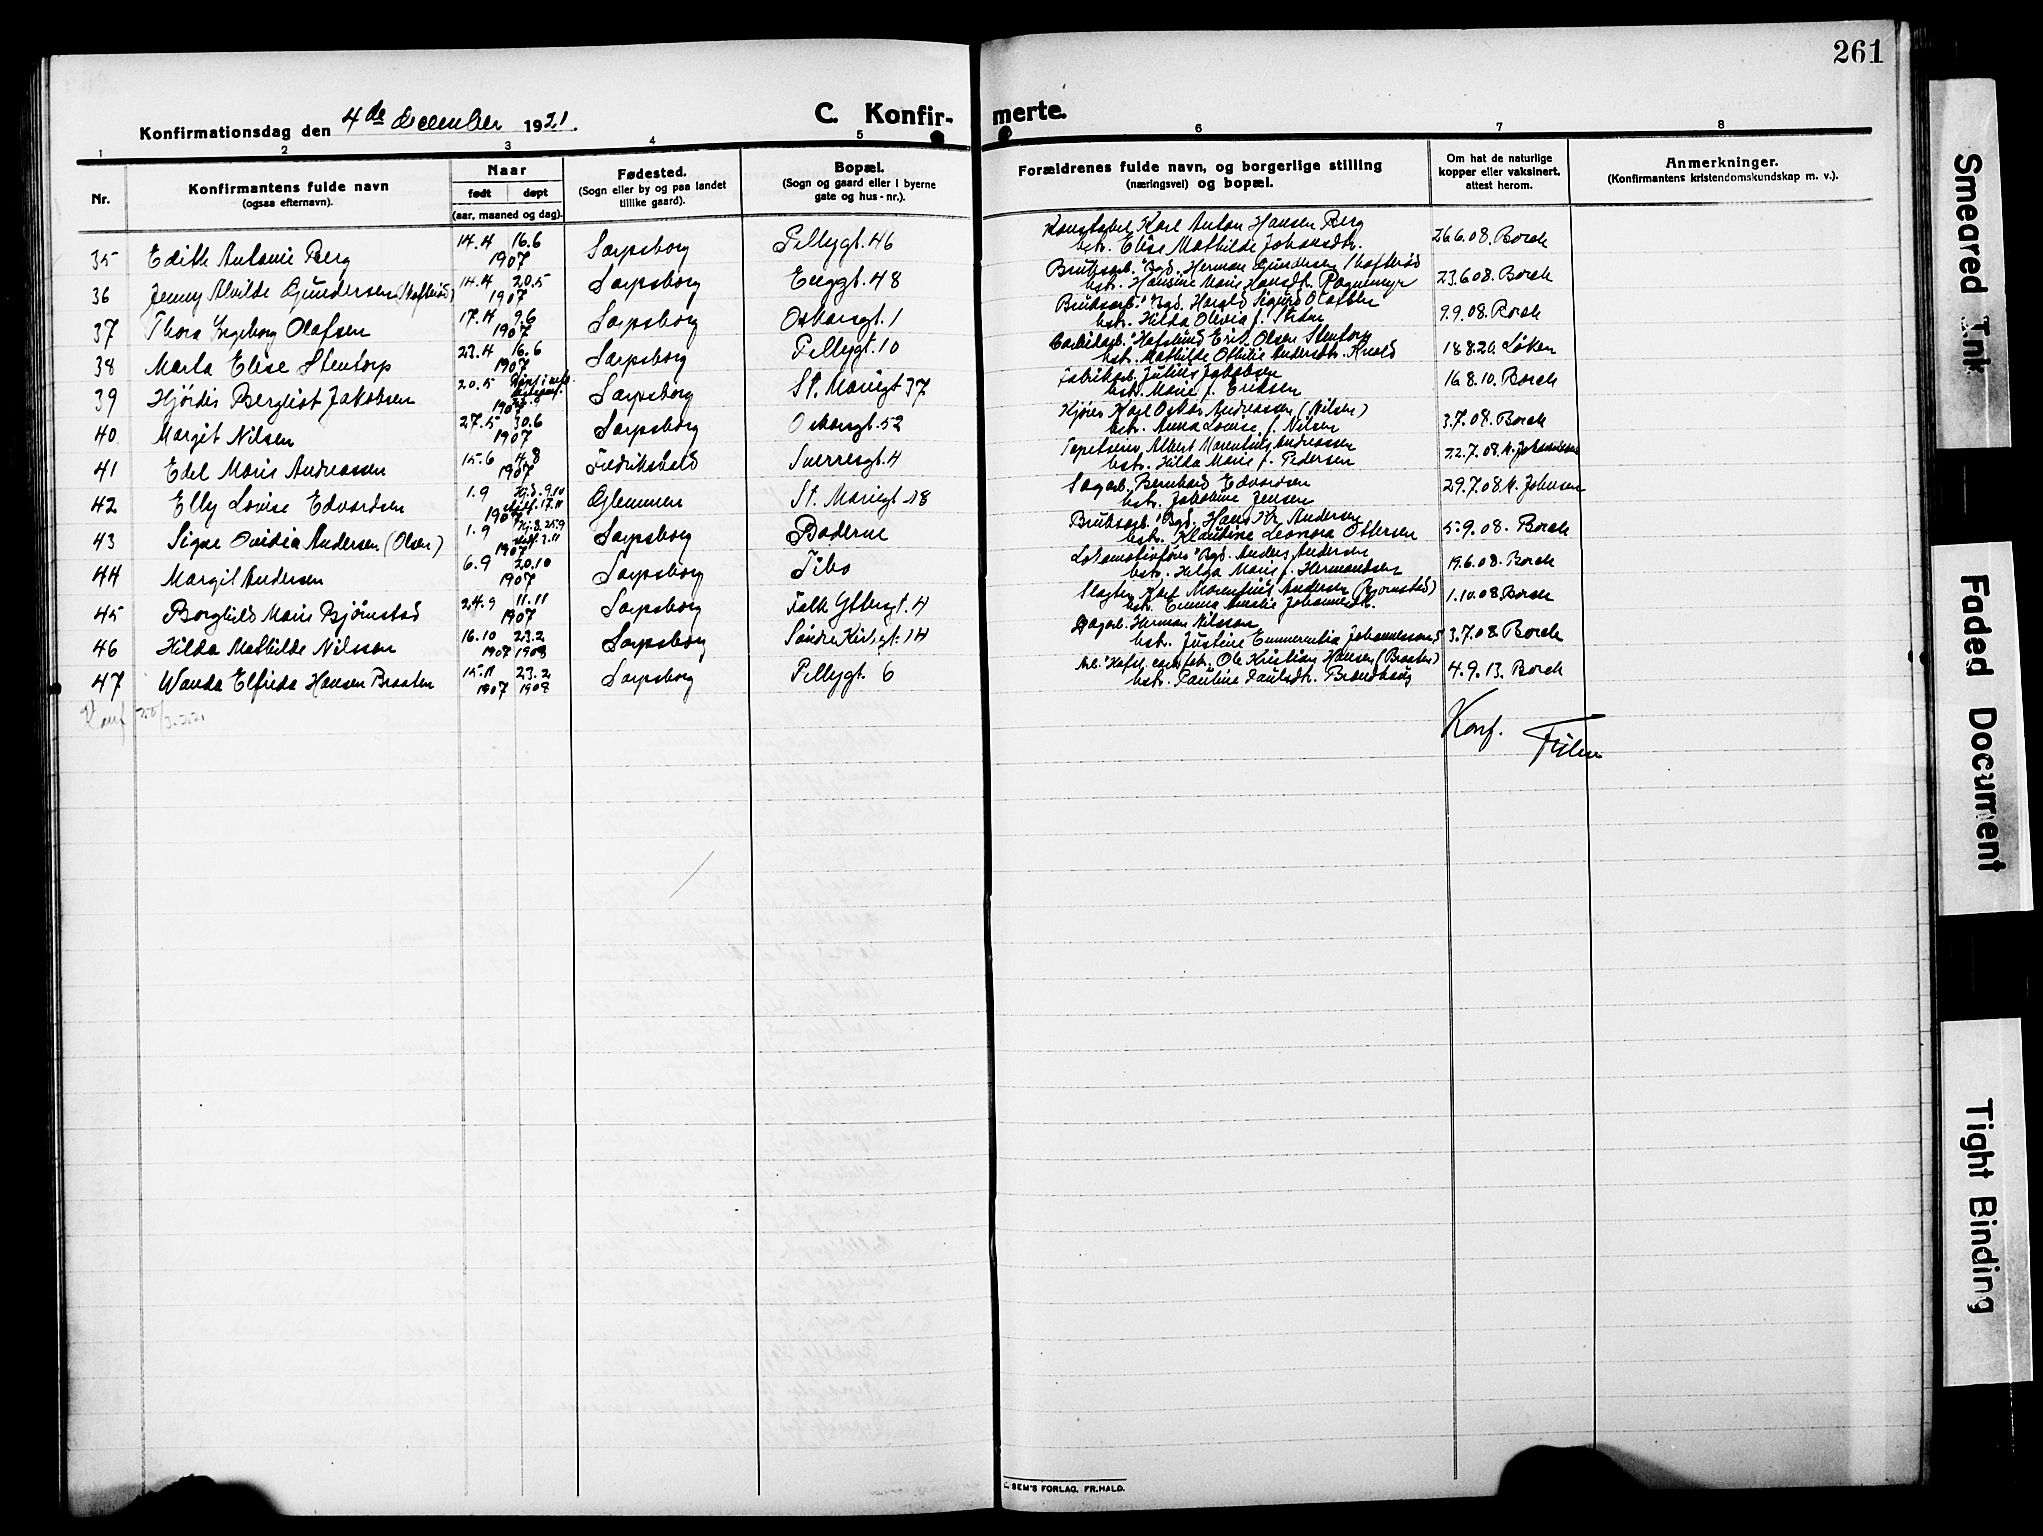 261
Konfirmationsdag den 4de december 1921.
C. Konfirmerte.
1 2 3 4 5 6 7 8
Nr.
Konfirmantens fulde navn
(ogsaa efternavn).
Naar
født døpt
(aar, maaned og dag).
Fødested.
(Sogn eller by og paa landet
tillike gaard).
Bopæl.
(Sogn og gaard eller i byerne
gate og hus-nr.).
Forældrenes fulde navn, og borgerlige stilling
(næringsvei) og bopæl.
Om hat de naturlige
kopper eller vaksinert,
attest herom.
Anmerkninger.
(Konfirmantens kristendomskundskap m. v.).
35 Edith Antonie Berg 14.4 16.6 1907 Sarpsborg Pellygt. 46 Konstabel Karl Anton Hansen Berg
hstr. Elise Mathilde Johansdtr. 26.6.08. Borch
36 Jenny Alvilde Gundersen (Skofterød) 14.4 20.5 1907 Sarpsborg Enggt. 48 Bruksarb. Bgd. Herman Gundersen Skofterød
hstr. Hansine Marie Hansdtr. 23.6.08. Borch
37 Thora Ingeborg Olafsen 17.4 9.6 1907 Sarpsborg Oskarsgt. 1 Bruksarb. Bgd. Harald Sigurd Olafsen
hstr. Hilda Olivia f. 9.9.08. Borch
38 Marta Elise Stentorp 23.4 16.6 1907 Sarpsborg Pellygt. 10 Carbidarb. Hafslund Erik Olsen Stentorp
hstr. Mathilde Othilie Andersdtr. 18.8.20. Løken
39 Hjørdis Bergliot Jakobsen 20.5 1907 Sarpsborg St. Mariegt 37 Fabrikarb. Julius Jakobsen
hstr. Marie f. Eriksen 16.8.10. Borch
40 Margit Nilsen 27.5 30.6 1907 Sarpsborg Oskarsgt. 52 Kjører Karl Oskar Andreassen (Nilsen)
hstr. Anna Lovise f. Nilsen 3.7.08. Borch
41 Edel Marie Andreassen 15.6 4.8 1907 Fredrikshald Sverresgt. 4 Tapetserer Albert Marentius Andreassen
hstr. Hilda Marie f. Pedersen 22.7.08.
42 Elly Lovise Edvardsen 1.9 1907 Glemmen St. Mariegt. 18 Sagarb. Bernhard Edvardsen
hstr. Jakobine Jensen 29.7.08. Johnsen
43 Signe Ovidia Andersen (Olsen) 1.9 1907 Sarpsborg Boderne Bruksarb. Bgd. Hans Kr. Andersen
hstr. Klaudine Leonora Ottersen 5.9.08. Borch
44 Margit Andersen 6.9 20.10 1907 Sarpsborg Tibo Lokomotivfører Bgd. Anders Andersen
hstr. Helga Marie f. Hermansen 19.6.08. Borch
45 Borghild Marie Bjørnstad 24.9 11.11 1907 Sarpsborg Falk Yttersgt. 4 Slagter Karl Marentius Andersen (Bjørnstad)
hstr. Emma Amalie Johannesdtr. 1.10.08 Borch
46 Hilda Mathilde Nilsson 16.10 23.2 1907 1908 Sarpsborg Søndre Kirkegt. 14 Dagarb. Herman Nilsson
hstr. Justine Emmerentia Johannesson 3.7.08. Borch
47 Wanda Elfrida Hansen Braaten 15.11 23.2 1907 1908 Sarpsborg Pellygt. 6 Ole Kristian Hansen (Braaten)
hstr. Pauline Paulsdtr. 4.9.13. Borch
Konf.
SEM'S FORLAG, FR.HALD.
Smeared Ink
Faded Document
Tight Binding